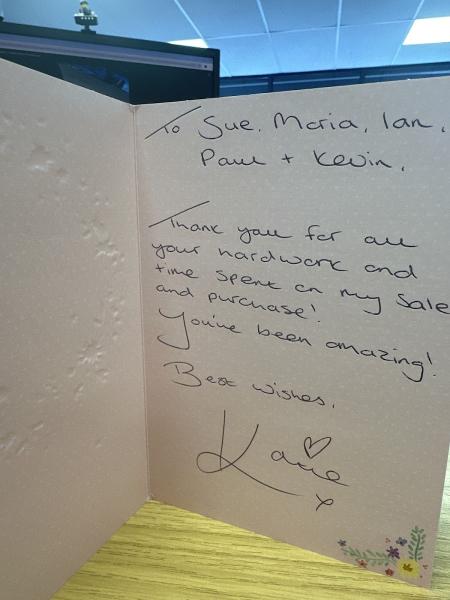 To Sue, Maria, Ian,
Paul + Kevin,
Thank you for all
your hardwork and
time spent on my sale
and purchase!
You've been amazing!
Best wishes,
Katie
x